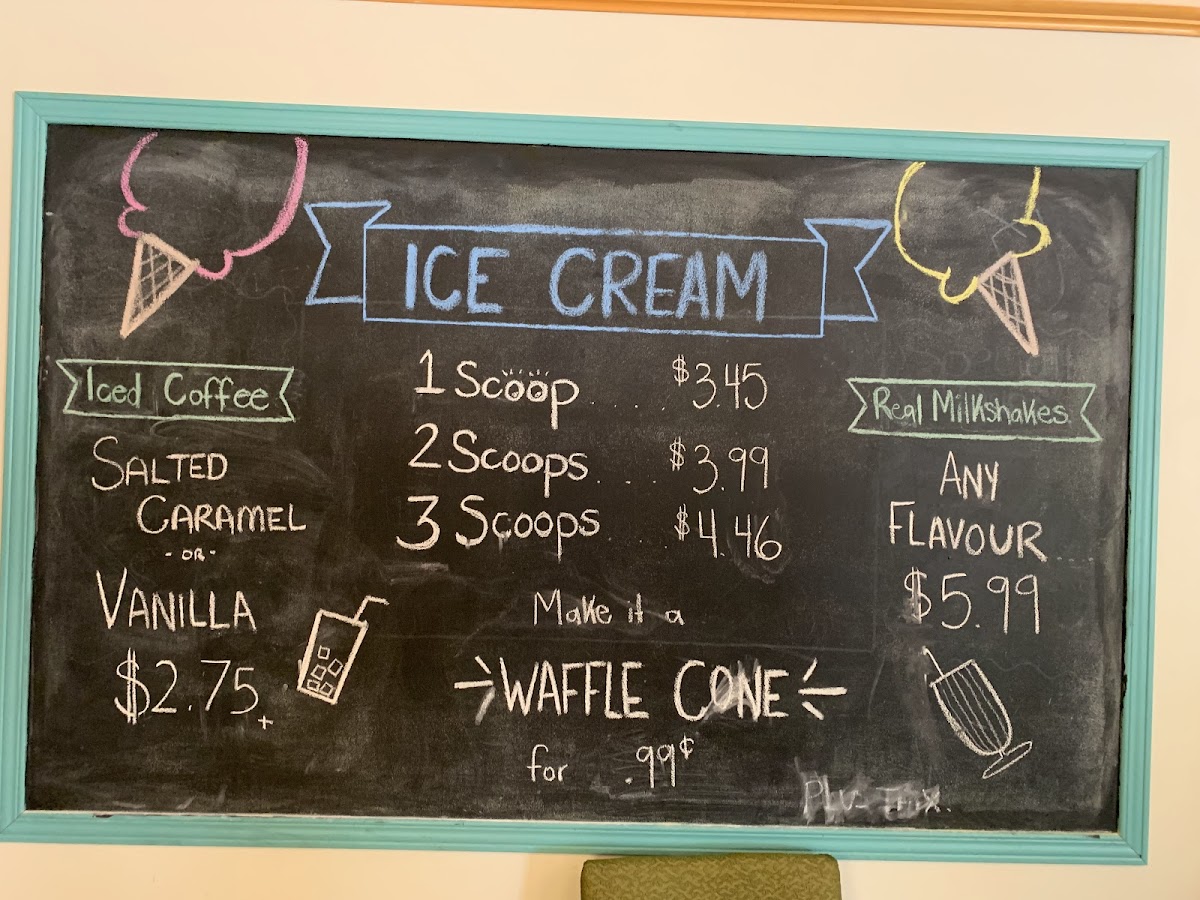 ICE CREAM
Iced Coffee
SALTED
CARAMEL
- OR -
VANILLA
$2.75+
1 Scoop..... $3.45
2 Scoops.... $3.99
3 Scoops.... $4.46
Make it a
WAFFLE CONE
for .99¢
Real Milkshakes
ANY
FLAVOUR
$5.99